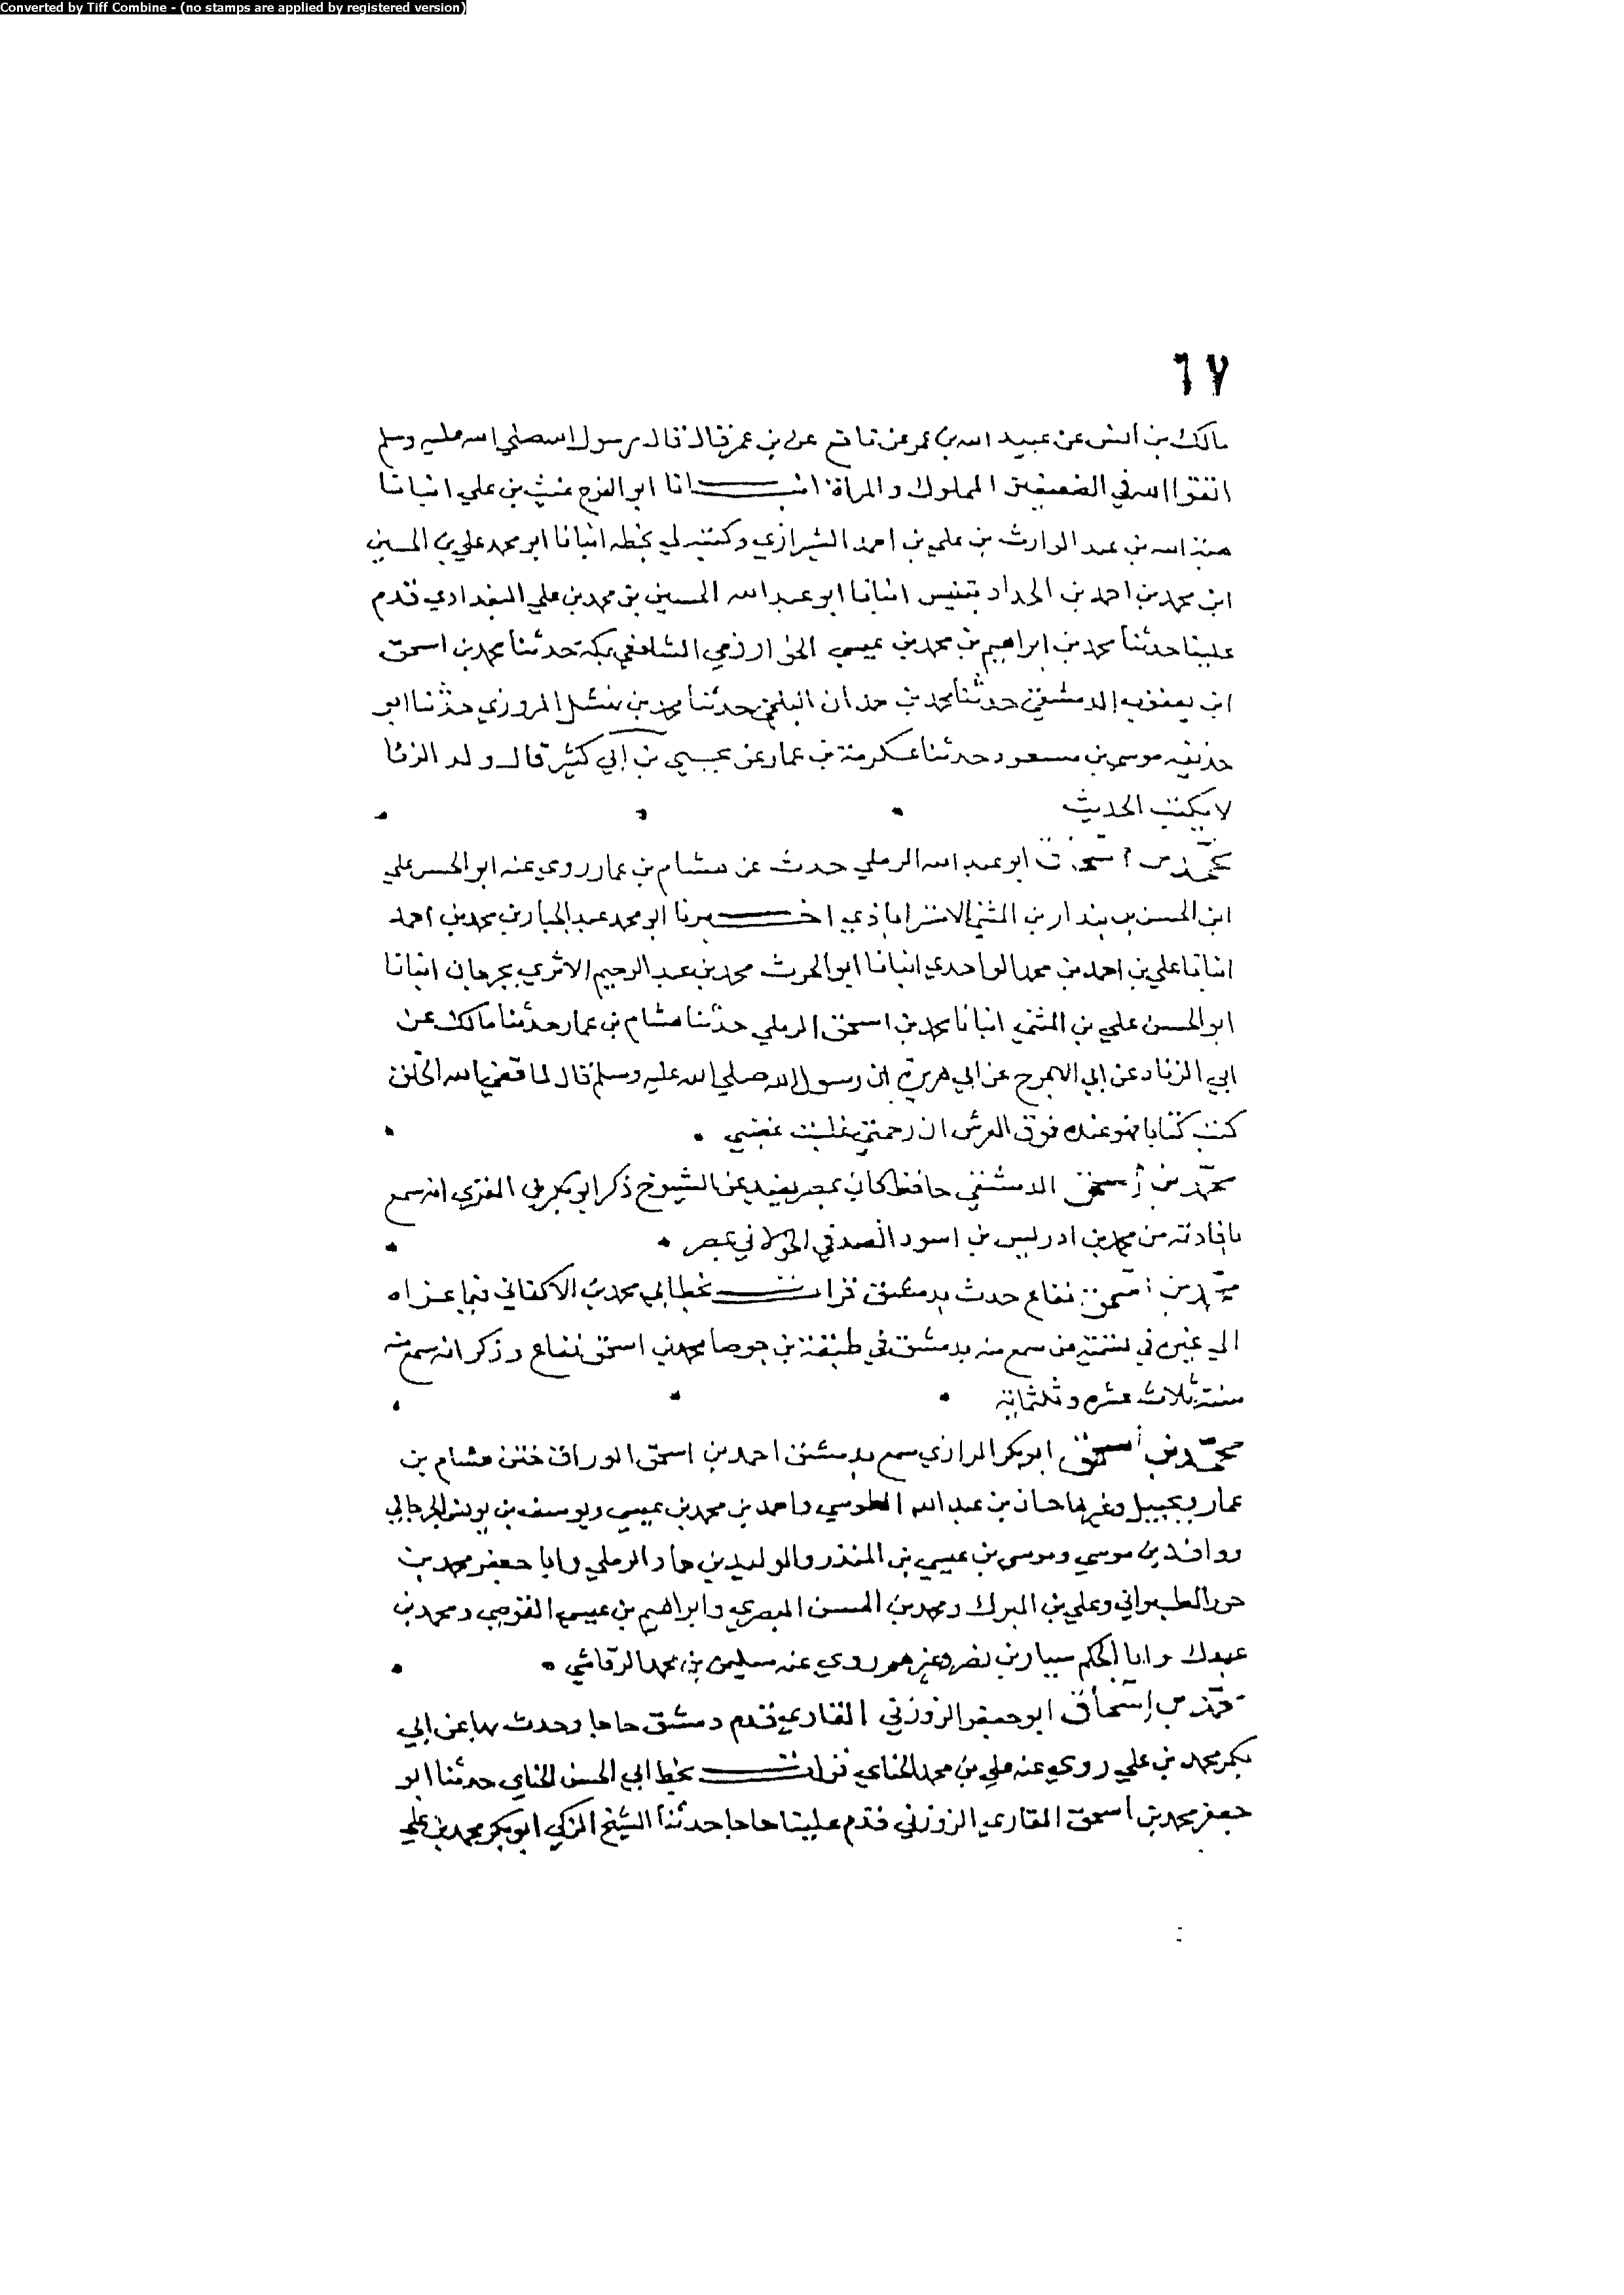 Converted by Tiff Combine - (no stamps are applied by registered version)
٦٧
مالك بن انس عن عبيد الله بن عمر عن نافع عن بن عمر قال قال رسول الله صلي الله عليه وسلم
اتقوا الله في الضعيفين المملوك والمراة انبانا ابو الفرج غيث بن علي انبانا
هبة الله بن عبد الوارث بن علي بن احمد الشيرازي وكتبه لي بخطه انبانا ابو محمد علي بن الحسين
ابن محمد بن احمد بن الحداد بتنيس انبانا ابو عبد الله الحسين بن محمد بن علي البغدادي قدم
علينا حدثنا محمد بن ابراهيم بن محمد بن عيسي الخوارزمي الشافعي بمكة حدثنا محمد بن اسحق
ابن يعقوب الدمشقي حدثنا محمد بن حمدان البلخي حدثنا محمد بن المروزي حدثنا ابو
حذيفه موسي بن مسعود حدثنا عكرمة بن عمار عن يحيي بن ابي كثير قال ولد الزنا
لا يكتب الحديث
محمد بن اسحق ابو عبد الله الرملي حدث عن هشام بن عمار روي عنه ابو الحسن علي
ابن الحسن بن بندار بن المثني الاستراباذي اخبرنا ابو محمد عبد الجبار بن محمد بن احمد
انبانا علي بن احمد بن محمد الواحدي انبانا ابو الحرث محمد بن عبد الرحيم الاثري بجرجان انبانا
ابو الحسن علي بن المثني انبانا محمد بن اسحق الرملي حدثنا هشام بن عمار حدثنا مالك عن
ابي الزناد عن ابي الاعرج عن ابي هريرة ان رسول الله صلي الله عليه وسلم قال لما قضي الله الخلق
كتب كتابا فهو عنده فوق العرش ان رحمتي غلبت غضبي
محمد بن اسحق الدمشقي حافظ كان بمصر يفيد عن الشيوخ ذكر ابو بكر المقري انه سمع
بافادته من محمد بن ادريس بن اسود الصدفي الخولاني بمصر
محمد بن اسحق نفاع حدث بدمشق قرات بخط ابي محمد بن الاكفاني فيما عزاه
الي غيره في تسمية من سمع منه بدمشق في طبقة بن جوصا محمد بن اسحق نفاع وذكر انه سمع منه
سنة ثلاث عشره وثلثمائة
محمد بن اسحق ابو بكر الرازي سمع بدمشق احمد بن اسحق الوراق ختن هشام بن
عمار وبجبيل وغيرها حسان بن عبد الله الطوسي واحمد بن محمد بن عيسي ويوسف بن يونس الجرجاني
ووافد بن موسي وموسي بن عيسي بن المنذر والوليد بن حماد الرملي وابا جعفر محمد بن
وعلي بن المبرك ومحمد بن الحسن البصري وابراهيم بن عيسي ومحمد بن
عبدك وابا الحكم سيار بن نصر وغيرهم روي عنه سليمن بن محمد الرقاشي
محمد بن اسحاق ابو جعفر الزوزني القاري قدم دمشق حاجا وحدث بها عن ابي
بكر محمد بن علي روي عنه علي بن محمد الحنائي قرات بخط ابي الحسن الحنائي حدثنا ابو
جعفر محمد بن اسحق المقاري الزوزني قدم علينا حاجا حدثنا الشيخ المزكي ابو بكر محمد بن علي